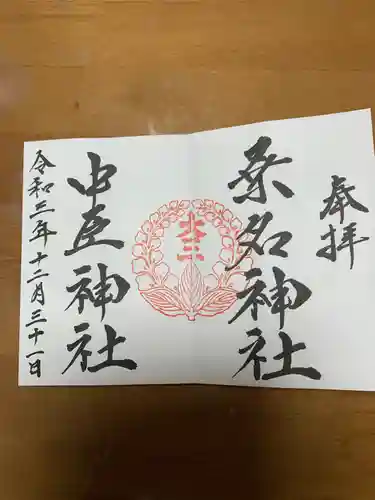 奉拝
桑名神社
中臣神社
令和三年十二月三十一日